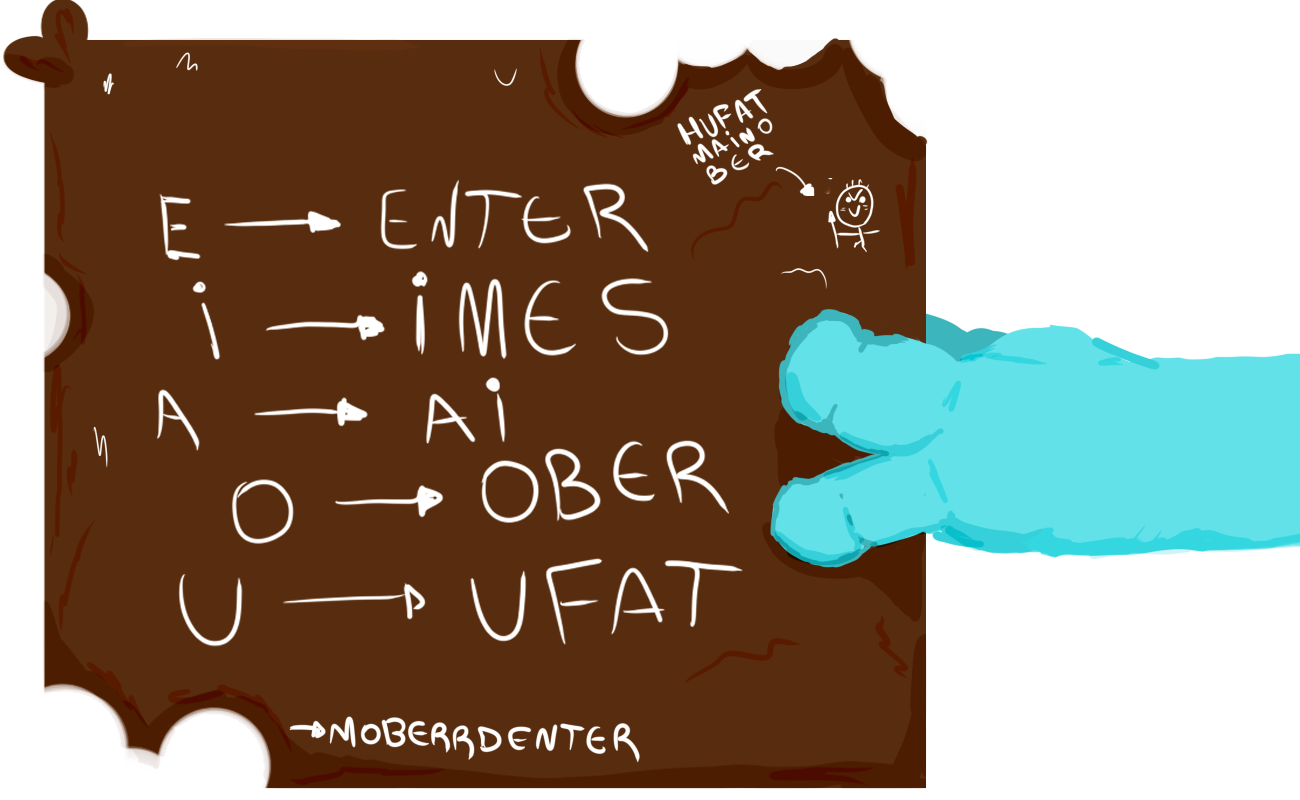 HUFAT
MAiNO
BER
E → ENTER
i → iMES
A → Ai
O → OBER
U → UFAT
→ MOBERRDENTER